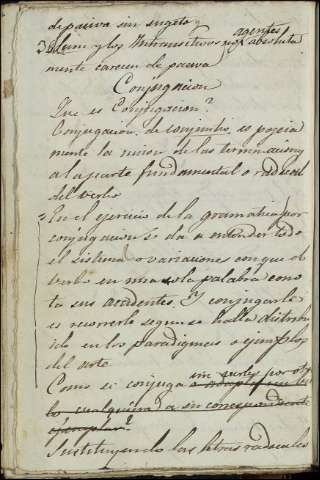 de pasiva sin sugeto agentes
y los Intransitivos absoluta
mente carecen de pasiva
Conjugacion
Que es Conjugacion?
Conjugacion, de es
mente la union de las terminaciones
a la parte fundamental o radical
del verbo
En el ejercicio de la gramatica por
conjugacion se da a entender todo
el sistema o variaciones con que el
verbo en una sola palabra cono
ta sus accidentes. Y conjugarle
es recorrerle segun se halla distribu
ido en los paradigmas o ejemplos
del arte
Como se conjuga un verbo por otro
cualquiera a su correspondiente
ejemplar?
Sustituyendo las letras radicales